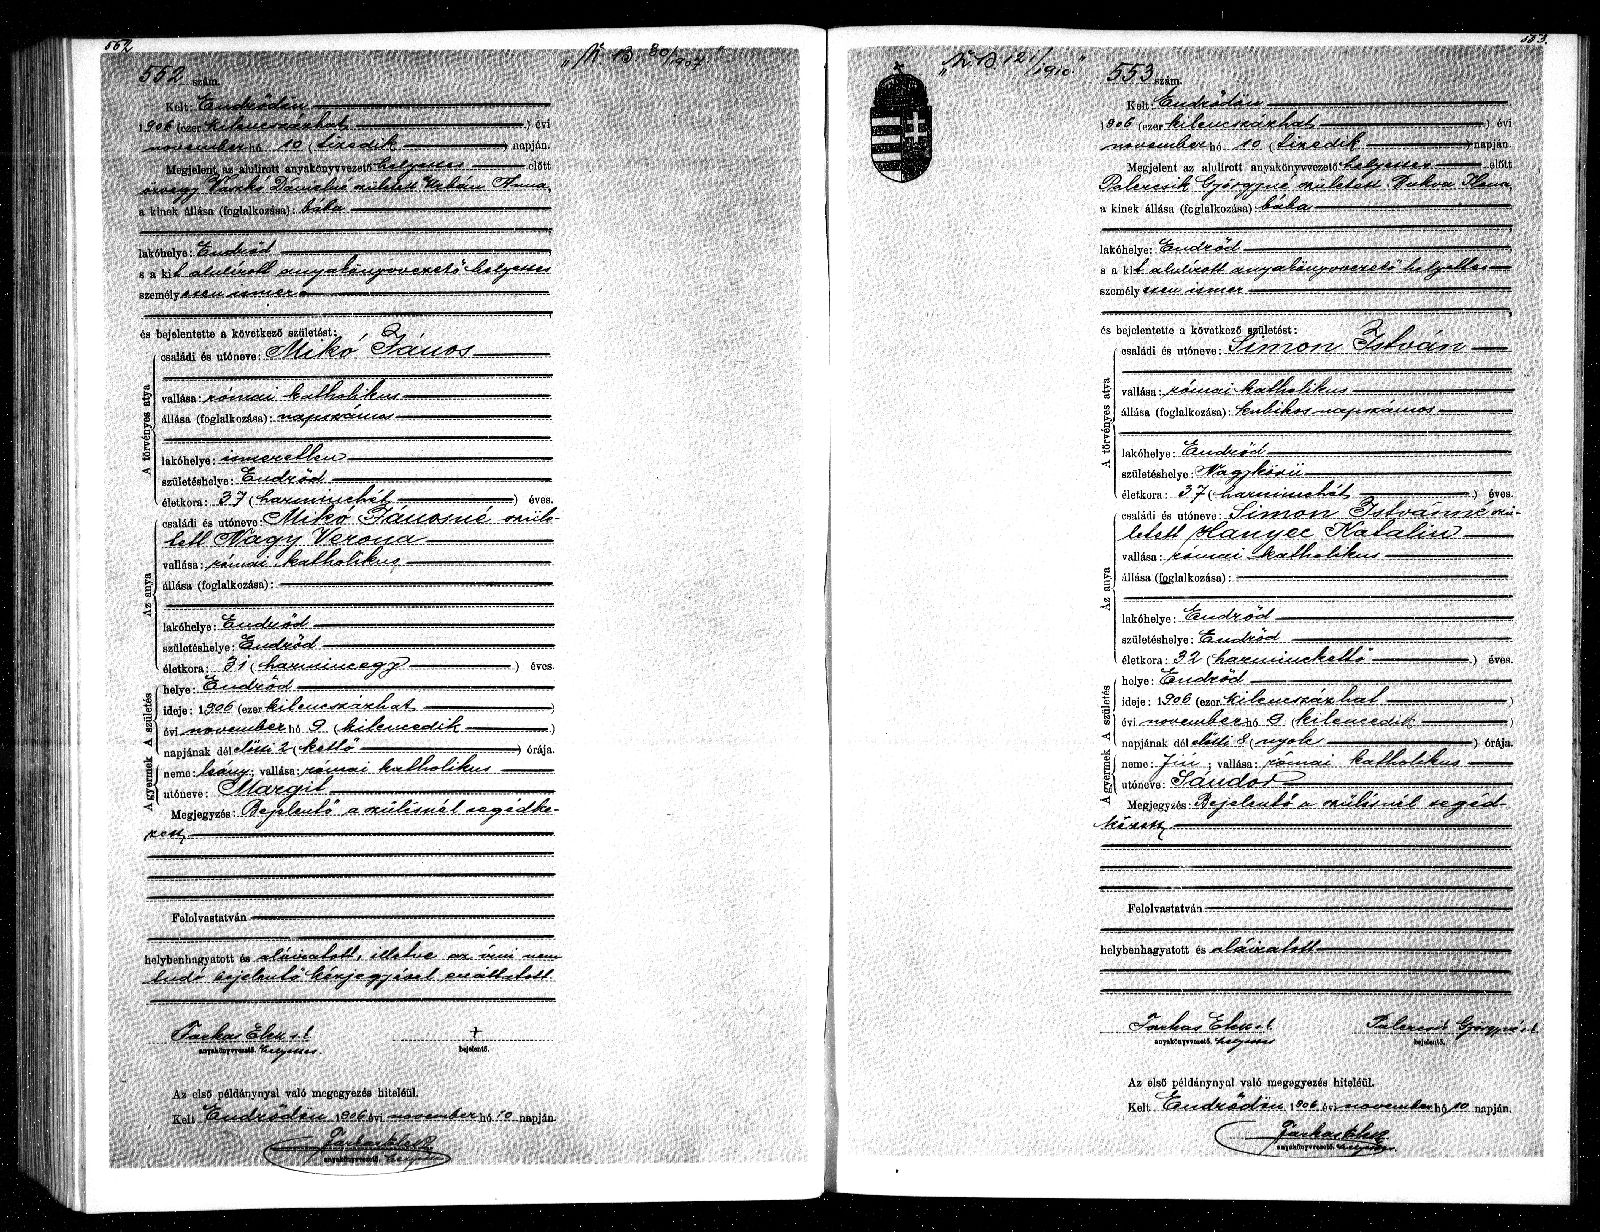 552
552 szám.
Kelt: Endrődön
1906 (ezer kilencszázhat) évi
november hó 10 (tizedik) napján.
Megjelent az alulirott anyakönyvvezető helyettes előtt
özvegy Vaszkó Dánielné született Urbán Anna,
a kinek állása (foglalkozása): bába
lakóhelye: Endrőd
s a kit alulírott anyakönyvvezető helyettes
személyesen ismer
és bejelentette a következő születést:
A törvényes atya
családi és utóneve: Mikó János
vallása: római katholikus
állása (foglalkozása): napszámos
lakóhelye: ismeretlen
születéshelye: Endrőd
életkora: 37 (harminchét) éves.
Az anya
családi és utóneve: Mikó Jánosné szüle-
tett Nagy Verona
vallása: római katholikus
állása (foglalkozása):
lakóhelye: Endrőd
születéshelye: Endrőd
életkora: 31 (harminczegy) éves.
A születés
helye: Endrőd
ideje: 1906 (ezer kilencszázhat)
évi november hó 9. (kilencedik)
napjának dél előtti 2 (kettő) órája.
A gyermek
neme: leány; vallása: római katholikus
utóneve: Margit
Megjegyzés: Bejelentő a szülésnél segédke-
zett
Felolvastatván
helybenhagyatott és aláíratott, illetve az írni nem
tudó bejelentő kézjegyével elláttatott
Farkas Elek s.k. +
anyakönyvvezető. helyettes bejelentő.
Az első példánynyal való megegyezés hiteléül.
Kelt Endrődön 1906 évi november hó 10 napján.
Farkas Elek
anyakönyvvezető. helyettes
553.
553 szám.
Kelt: Endrődön
1906 (ezer kilencszázhat) évi
november hó 10 (tizedik) napján.
Megjelent az alulirott anyakönyvvezető helyettes előtt
Palercsik Györgyné született Dukon Ilona,
a kinek állása (foglalkozása): bába
lakóhelye: Endrőd
s a kit alulírott anyakönyvvezető helyettes
személyesen ismer
és bejelentette a következő születést:
A törvényes atya
családi és utóneve: Simon István
vallása: római katholikus
állása (foglalkozása): kubikos napszámos
lakóhelye: Endrőd
születéshelye: Nagykörü
életkora: 37 (harminchét) éves.
Az anya
családi és utóneve: Simon Istvánné szü-
letett Hanyec Katalin
vallása: római katholikus
állása (foglalkozása):
lakóhelye: Endrőd
születéshelye: Endrőd
életkora: 32 (harminckettő) éves.
A születés
helye: Endrőd
ideje: 1906 (ezer kilencszázhat)
évi november hó 9 (kilencedik)
napjának dél előtti 8 (nyolc) órája.
A gyermek
neme: fiú; vallása: római katholikus
utóneve: Sándor
Megjegyzés: Bejelentő a szülésnél segéd-
kezett
Felolvastatván
helybenhagyatott és aláíratott
Farkas Elek s.k. Györgyné s.k.
anyakönyvvezető. helyettes bejelentő.
Az első példánynyal való megegyezés hiteléül.
Kelt Endrődön 1906 évi november hó 10 napján.
Farkas Elek
anyakönyvvezető. helyettes